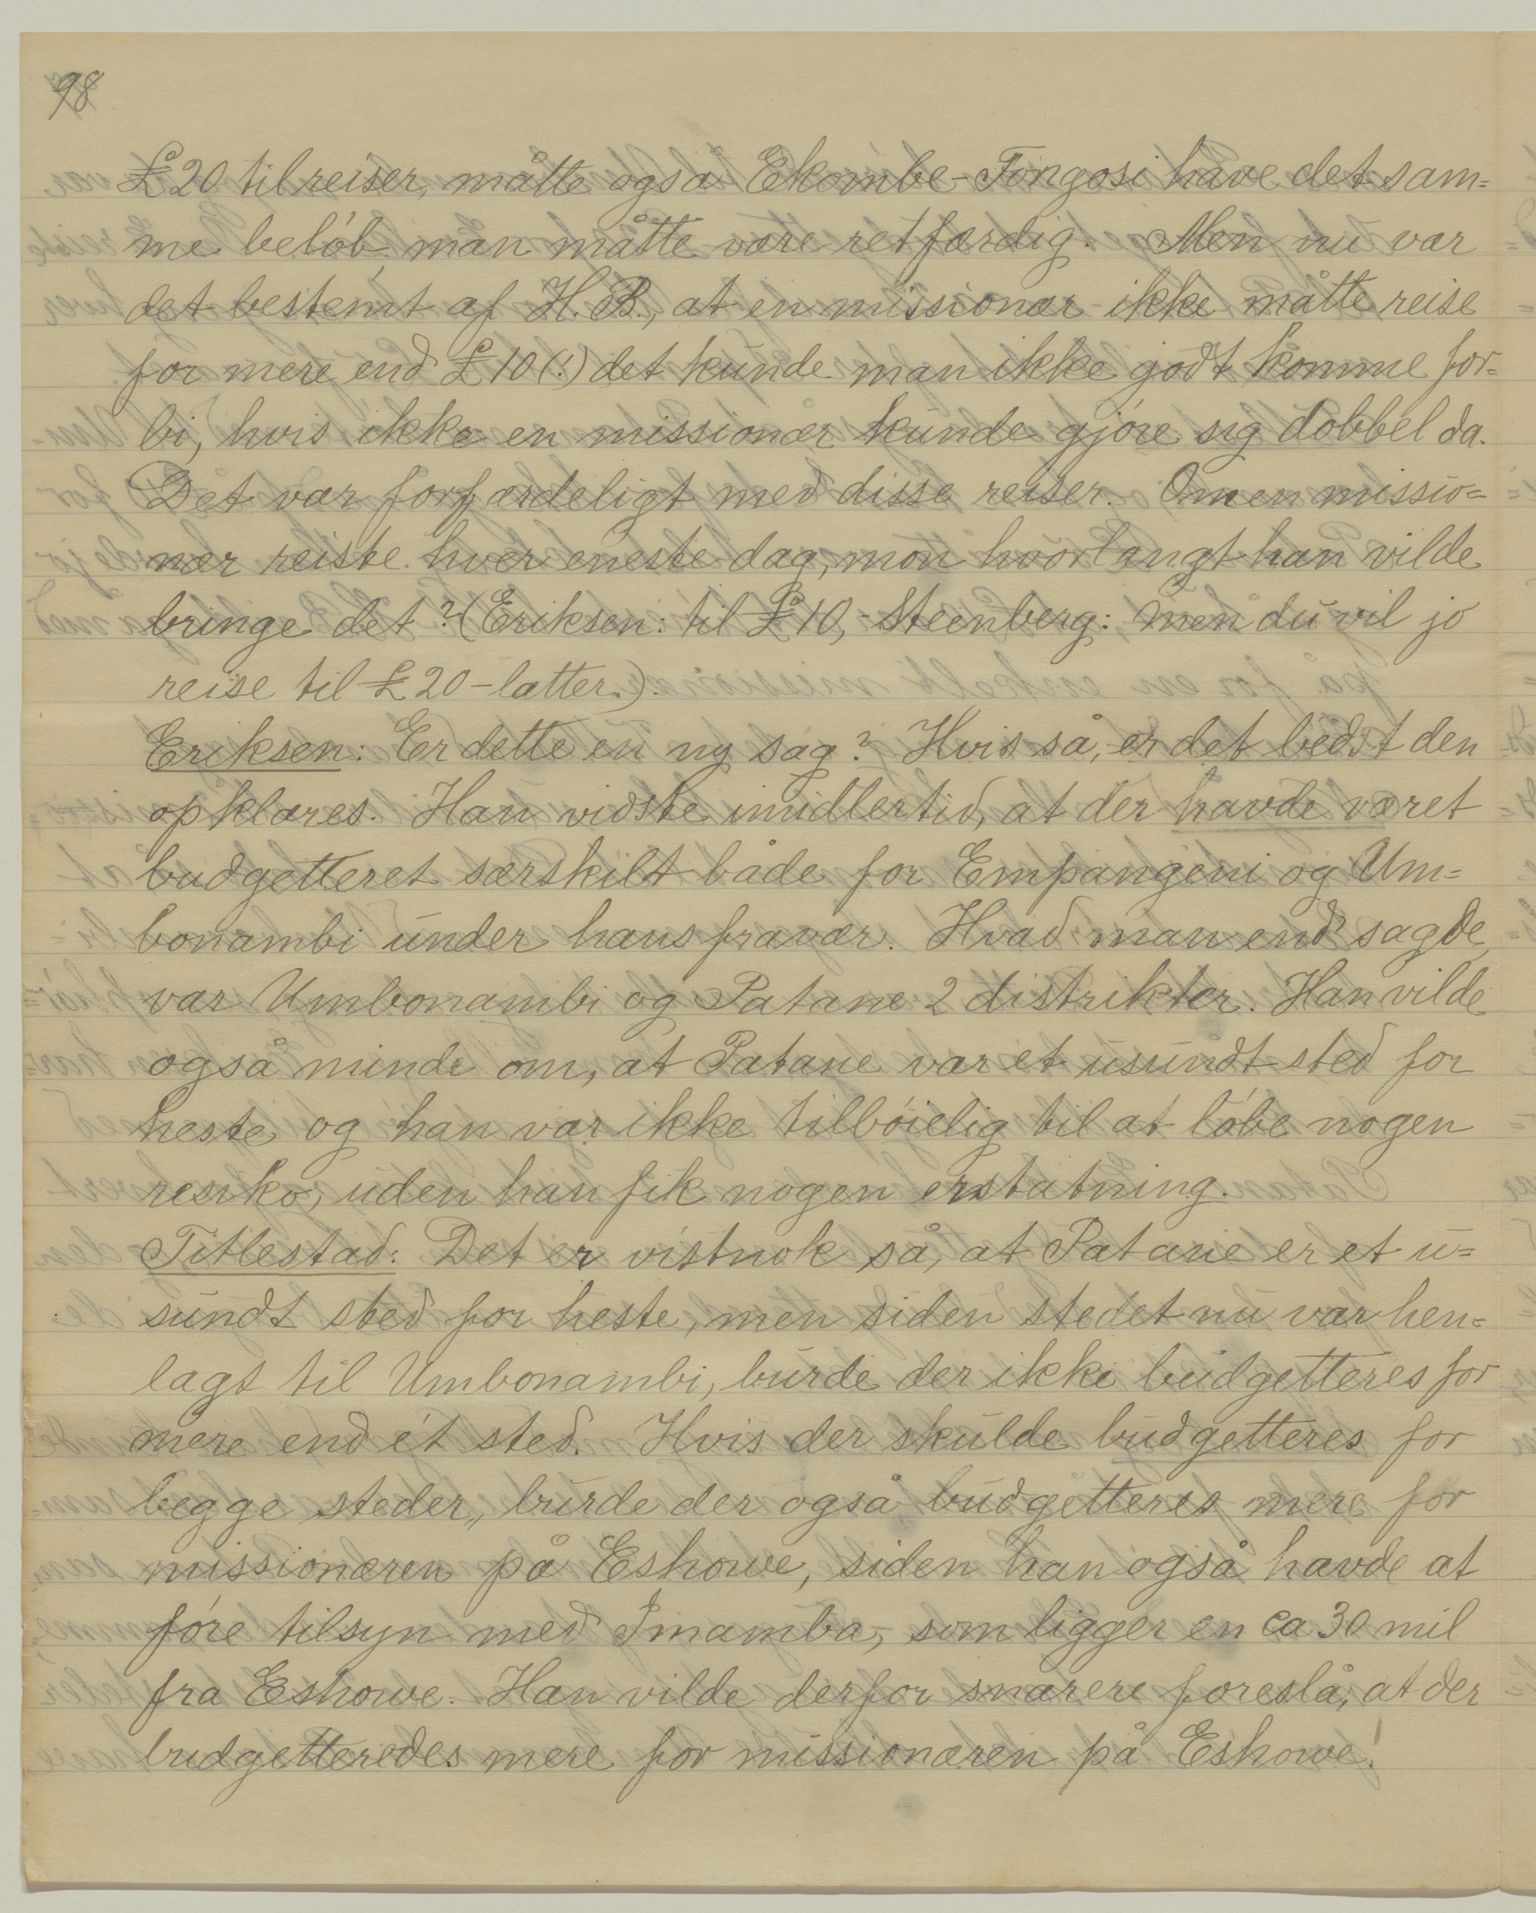 98
£20 til reiser, måtte også Ekombe-Fongosi have det sam=
me beløb, man måtte være retfærdig. Men nu var
det bestemt af H.B., at en missionær ikke måtte reise
for mere end £10 (!) det kunde man ikke godt komme for=
bi, hvis ikke en missionær kunde gjøre sig dobbel da.
Det var forfærdeligt med disse reiser. Om en missio=
nær reiste hver eneste dag, mon hvorlangt han vilde
bringe det? (Eriksen: til £10,-Steenberg: Men du vil jo
reise til £20-latter.).
Eriksen: Er dette en ny sag? Hvis så, er det bedst den
opklares. Han vidste imidlertid, at der havde været
budgetteret særskilt både for Empangeni og Um=
bonambi under hans fravær. Hvad man end sagde,
var Umbonambi og Patane 2 distrikter. Han vilde
også minde om, at Patane var et usundt sted for
heste og han var ikke tilbøielig til at løbe nogen
resiko, uden han fik nogen erstatning.
Titlestad: Det er vistnok så, at Patane er et u=
sundt sted for heste, men siden stedet nu var hen=
lagt til Umbonambi, burde der ikke budgetteres for
mere end ét sted. Hvis der skulde budgetteres for
begge steder, burde der også budgetteres mere for
missionæren på Eshowe, siden han også havde at
føre tilsyn med Imamba, som ligger en ca 30 mil
fra Eshowe. Han vilde derfor snarere foreslå, at der
budgetteredes mere for missionæren på Eshowe!